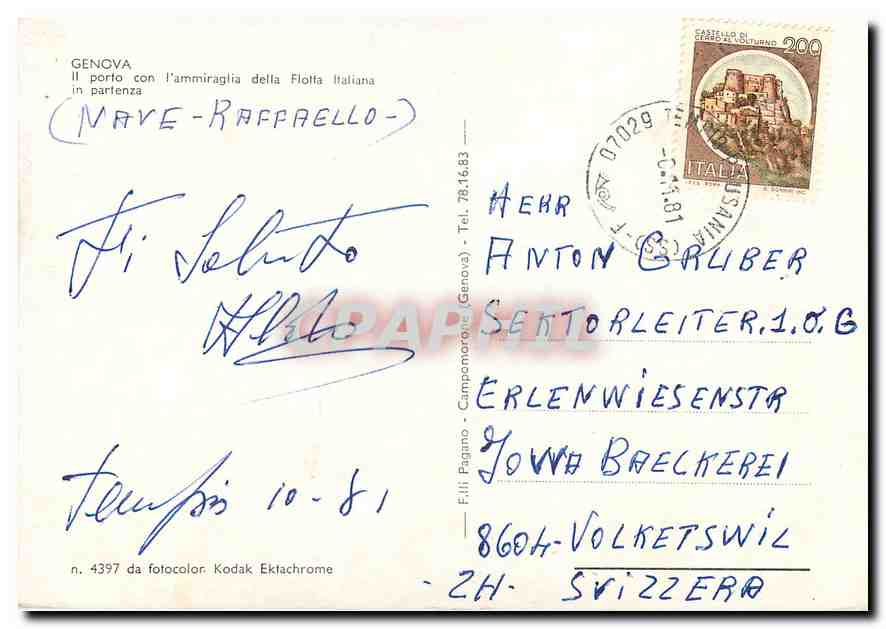 GENOVA
Il porto con l'ammiraglia della Flotta Italiana
in partenza
(NAVE - RAFFAELLO -)
Ti Saluto
Alberto
Tempio 10 - 81
n. 4397 da fotocolor Kodak Ektachrome
F.lli Pagano - Campomorone (Genova) - Tel. 78.16.83
CASTELLO DI
CERRO AL VOLTURNO
200
ITALIA
07029 PAUSANIA (SS) - F
.81
CPAPHIL
HERR
ANTON GRUBER
SEKTORLEITER.1.O.G
ERLENWIESENSTR
JOWA BAECKEREI
8604 - VOLKETSWIL
- ZH - SVIZZERA